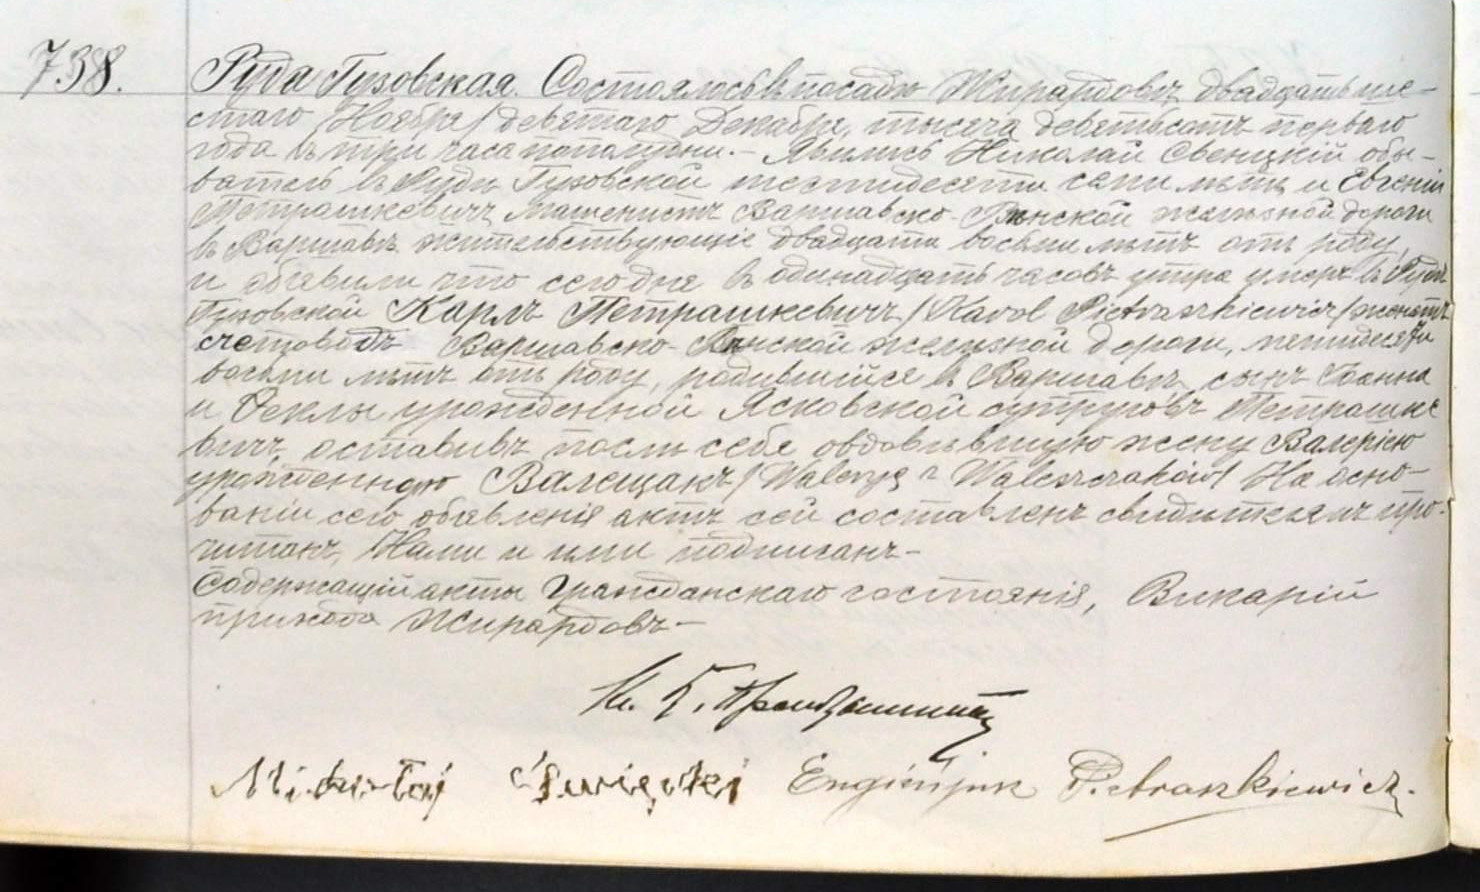 738.
Руда Гузовская. Состоялось въ посадѣ Жирардовъ двадцать ше-
стаго Ноября/девятаго Декабря, тысяча девятьсотъ перваго
года въ три часа пополудни. – Явились Николай Свенцкій обы-
ватель въ Рудѣ Гузовской шестидесяти семи лѣтъ и Евгеній
Петрашкевичъ машинистъ Варшавско-Вѣнской желѣзной дороги
въ Варшавѣ жительствующіе двадцати восьми лѣтъ отъ роду,
и объявили что сегодня въ одинадцать часовъ утра умеръ въ Рудѣ
Гузовской Карлъ Петрашкевичъ /Karol Pietraszkiewicz/ женатъ
счетоводъ Варшавско-Вѣнской желѣзной дороги, пятидесяти
восьми лѣтъ отъ роду, родившійся въ Варшавѣ сынъ Іоанна
и Теклы урожденной Ясковской супруговъ Петрашке
вичъ, оставивъ послѣ себя овдовѣвшую жену Валерію
урожденную Валещакъ /Waleryę z Waleszczaków/ На осно-
ваніи сего объявленія актъ сей составленъ свидѣтелямъ про-
читанъ, Нами и ими подписанъ –
Содержащій акты гражданскаго состоянія, Викарій
прихода Жирардовъ –
Mikołaj Święcki Engieńjusz Pietraszkiewicz.